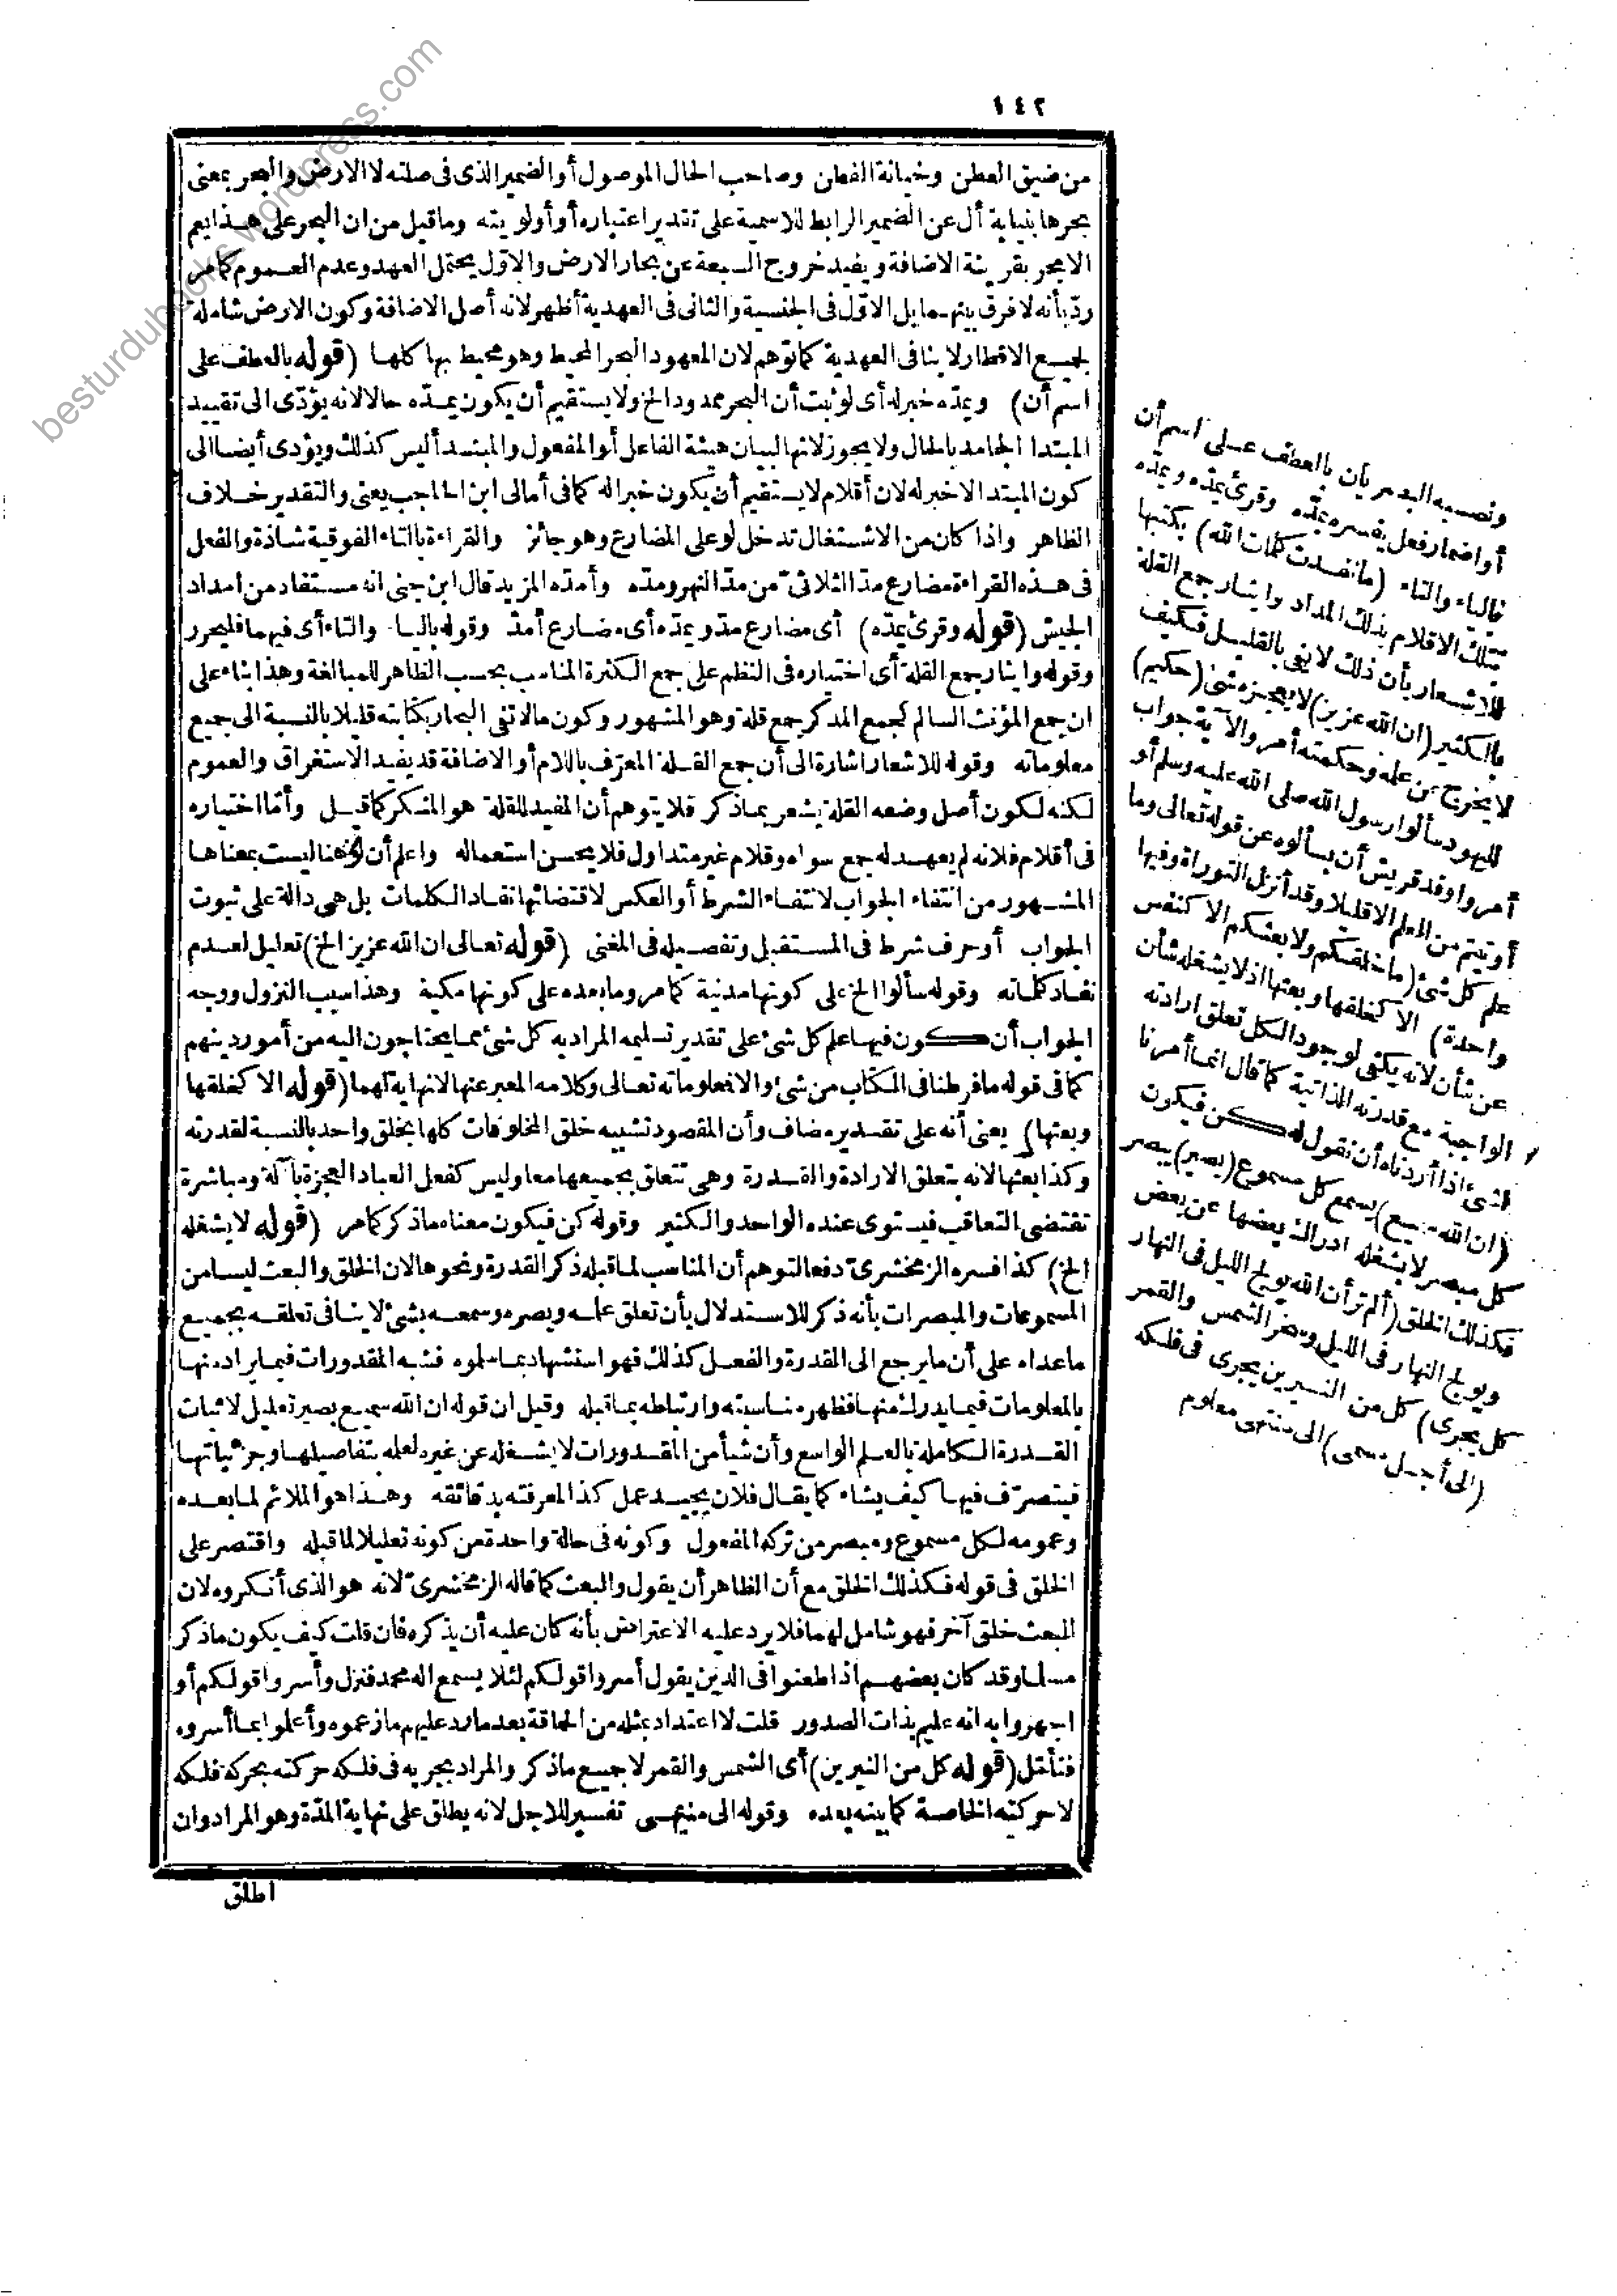 ١٤٢
من ضيق العطن وخيانة الفطن وصاحب الحال الموصول أو الضمير الذى فى صلته لا الارض والبحر بمعنى
بحرها بنيابة أل عن الضمير الرابط للاسمية على تقدير اعتباره أو أولويته وما قيل من ان البحر على هذا يعم
الابحر بقرينة الاضافة ويفيد خروج السبعة عن بحار الارض والاوّل يحتمل العهد وعدم العموم كما مر
ردّ بأنه لا فرق بينهما بل الاوّل فى الجنسية والثانى فى العهدية أظهر لانه أصل الاضافة وكون الارض شاملة
لجميع الاقطار لا ينافى العهدية كما توهم لان المعهود البحر المحيط وهو محيط بها كلها (قوله بالعطف على
اسم أن) ويمدّه خبر له أى لو ثبت أن البحر ممدود الخ ولا يستقيم أن يكون يمدّه حالا لانه يؤدّى الى تقييد
المبتدا الجامد بالحال ولا يجوز لانها لبيان هيئة الفاعل أو المفعول والمبتدأ ليس كذلك ويؤدى أيضا الى
كون المبتدا لا خبر له لان أقلام لا يستقيم أن يكون خبرا له كما فى أمالى ابن الحاجب يعنى والتقدير خلاف
الظاهر واذا كان من الاشتغال تدخل لو على المضارع وهو جائز والقراءة بالتاء الفوقية شاذة والفعل
فى هذه القراءة مضارع مدّ الثلاثىّ من مدّ النهر ومدّه وأمدّه المزيد قال ابن جنى انه مستفاد من امداد
الجيش (قوله وقرئ يمدّه) أى مضارع مدّ ويمدّه أى مضارع أمدّ وقوله بالياء والتاء أى فيهما فليحرر
وقوله وايثار جمع القلة أى اختياره فى النظم على جمع الكثرة المناسب بحسب الظاهر للمبالغة وهذا بناء على
ان جمع المؤنث السالم كجمع المذكر جمع قلة وهو المشهور وكون مالا تفى البحار بكتابته قليلا بالنسبة الى جميع
معلوماته وقوله للاشعار اشارة الى أن جمع القلة المعرّف باللام أو الاضافة قد يفيد الاستغراق والعموم
لكنه لكون أصل وضعه القلة يشعر بما ذكر فلا يتوهم أن المفيد للقلة هو المنكر كما قيل وأمّا اختياره
فى أقلام فلانه لم يعهد له جمع سواه وقلام غير متداول فلا يحسن استعماله واعلم أن لو هنا ليست بمعناها
المشهور من انتفاء الجواب لانتفاء الشرط أو العكس لاقتضائها نفاد الكلمات بل هى دالة على ثبوت
الجواب أو حرف شرط فى المستقبل وتفصيله فى المغنى (قوله تعالى ان الله عزيز الخ) تعليل لعدم
نفاد كلماته وقوله سألوا الخ على كونها مدنية كما مر وما بعده على كونها مكية وهذا سبب النزول ووجه
الجواب أن كون فيها علم كل شئ على تقدير تسليمه المراد به كل شئ مما يحتاجون اليه من أمور دينهم
كما فى قوله ما فرطنا فى الكتاب من شئ والا فمعلوماته تعالى وكلامه المعبر عنها لا نهاية لهما (قوله الا كخلقها
وبعثها) يعنى أنه على تقدير مضاف وأن المقصود تشبيه خلق المخلوقات كلها بخلق واحد بالنسبة لقدرته
وكذا بعثها لانه بتعلق الارادة والقدرة وهى تتعلق بجميعها معا وليس كفعل العباد العجزة بآلة ومباشرة
تقتضى التعاقب فيستوى عنده الواحد والكثير وقوله كن فيكون معناه ما ذكر كما مر (قوله لا يشغله
الخ) كذا فسره الزمخشرىّ دفعا لتوهم أن المناسب لما قبله ذكر القدرة ونحوها لان الخلق والبعث ليسا من
المسموعات والمبصرات بأنه ذكر للاستدلال بأن تعلق علمه وبصره وسمعه بشئ لا ينافى تعلقه بجميع
ما عداه على أن ما يرجع الى القدرة والفعل كذلك فهو استشهاد بما سلموه فشبه المقدورات فيما يراد منها
بالمعلومات فيما يدرك منها فظهر مناسبته وارتباطه بما قبله وقيل ان قوله ان الله سميع بصير تعليل لاثبات
القدرة الكاملة بالعلم الواسع وأن شيأ من المقدورات لا يشغله عن غيره لعلمه بتفاصيلها وجزئياتها
فيتصرّف فيها كيف يشاء كما يقال فلان يجيد عمل كذا لمعرفته بدقائقه وهذا هو الملائم لما بعده
وعمومه لكل مسموع ومبصر من تركه المفعول وكونه فى حالة واحدة من كونه تعليلا لما قبله واقتصر على
الخلق فى قوله فكذلك الخلق مع أن الظاهر أن يقول والبعث كما قاله الزمخشرىّ لانه هو الذى أنكروه لان
البعث خلق آخر فهو شامل لهما فلا يرد عليه الاعتراض بأنه كان عليه أن يذكره فان قلت كيف يكون ما ذكر
مسلما وقد كان بعضهم اذا طعنوا فى الدين يقول أسروا قولكم لئلا يسمع اله محمد فنزل وأسروا قولكم أو
اجهروا به انه عليم بذات الصدور قلت لا اعتداد بمثله من الحماقة بعد ما رد عليهم ما زعموه وأعلموا بما أسروه
فتأمّل (قوله كل من النيرين) أى الشمس والقمر لا جميع ما ذكر والمراد بجريه فى فلكه حركته بحركة فلكه
لا حركته الخاصة كما بينه بعده وقوله الى منتهى تفسير للاجل لانه يطلق على نهاية المدّة وهو المراد وان
اطلق
ونصبه البصريان بالعطف على اسم أن
أو اضمار فعل يفسره يمدّه وقرئ يمدّه ويمدّه
بالياء والتاء (ما نفدت كلمات الله) بكتبها
بتلك الاقلام بذلك المداد وايثار جمع القلة
للاشعار بأن ذلك لا يفى بالقليل فكيف
بالكثير (ان الله عزيز) لا يعجزه شئ (حكيم)
لا يخرج عن علمه وحكمته أمر والآية جواب
لليهود سألوا رسول الله صلى الله عليه وسلم أو
أمروا وفد قريش أن يسألوه عن قوله تعالى وما
أوتيتم من العلم الا قليلا وقد أنزل التوراة وفيها
علم كل شئ (ما خلقكم ولا بعثكم الا كنفس
واحدة) الا كخلقها وبعثها اذ لا يشغله شأن
عن شأن لانه يكفى لوجود الكل تعلق ارادته
الواجبة مع قدرته الذاتية كما قال انما أمرنا
لشئ اذا أردناه أن نقول له كن فيكون
(ان الله سميع) يسمع كل مسموع (بصير) يبصر
كل مبصر لا يشغله ادراك بعضها عن بعض
فكذلك الخلق (ألم تر أن الله يولج الليل فى النهار
ويولج النهار فى الليل وسخر الشمس والقمر
كل يجرى) كل من النيرين يجرى فى فلكه
(الى أجل مسمى) الى منتهى معلوم
besturdubooks.wordpress.com